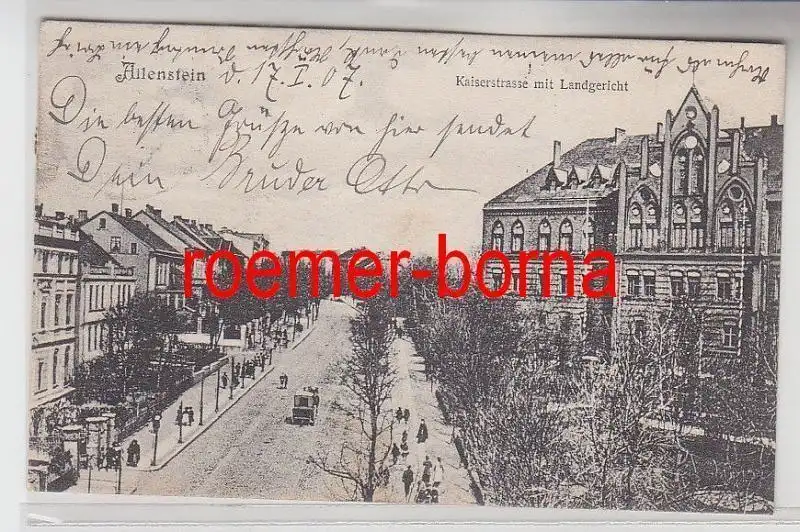 Allenstein d. 17. I. 07.
Kaiserstrasse mit Landgericht
Die besten Grüße von hier sendet
Dein Bruder Otto
roemer-borna
meinen besten Dank